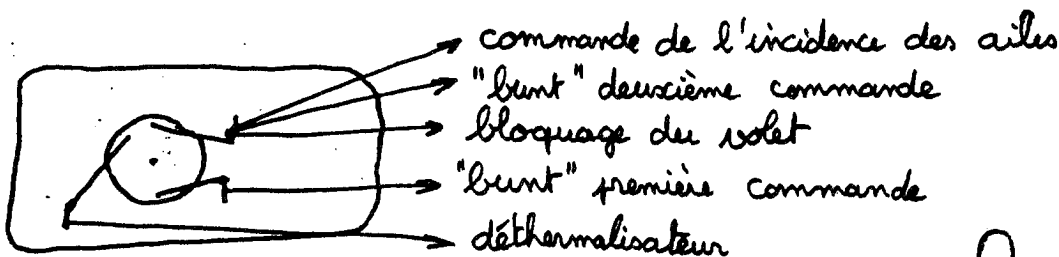 commande de l'incidence des ailes
"bunt" deuxième commande
bloquage du volet
"bunt" première commande
déthermalisateur